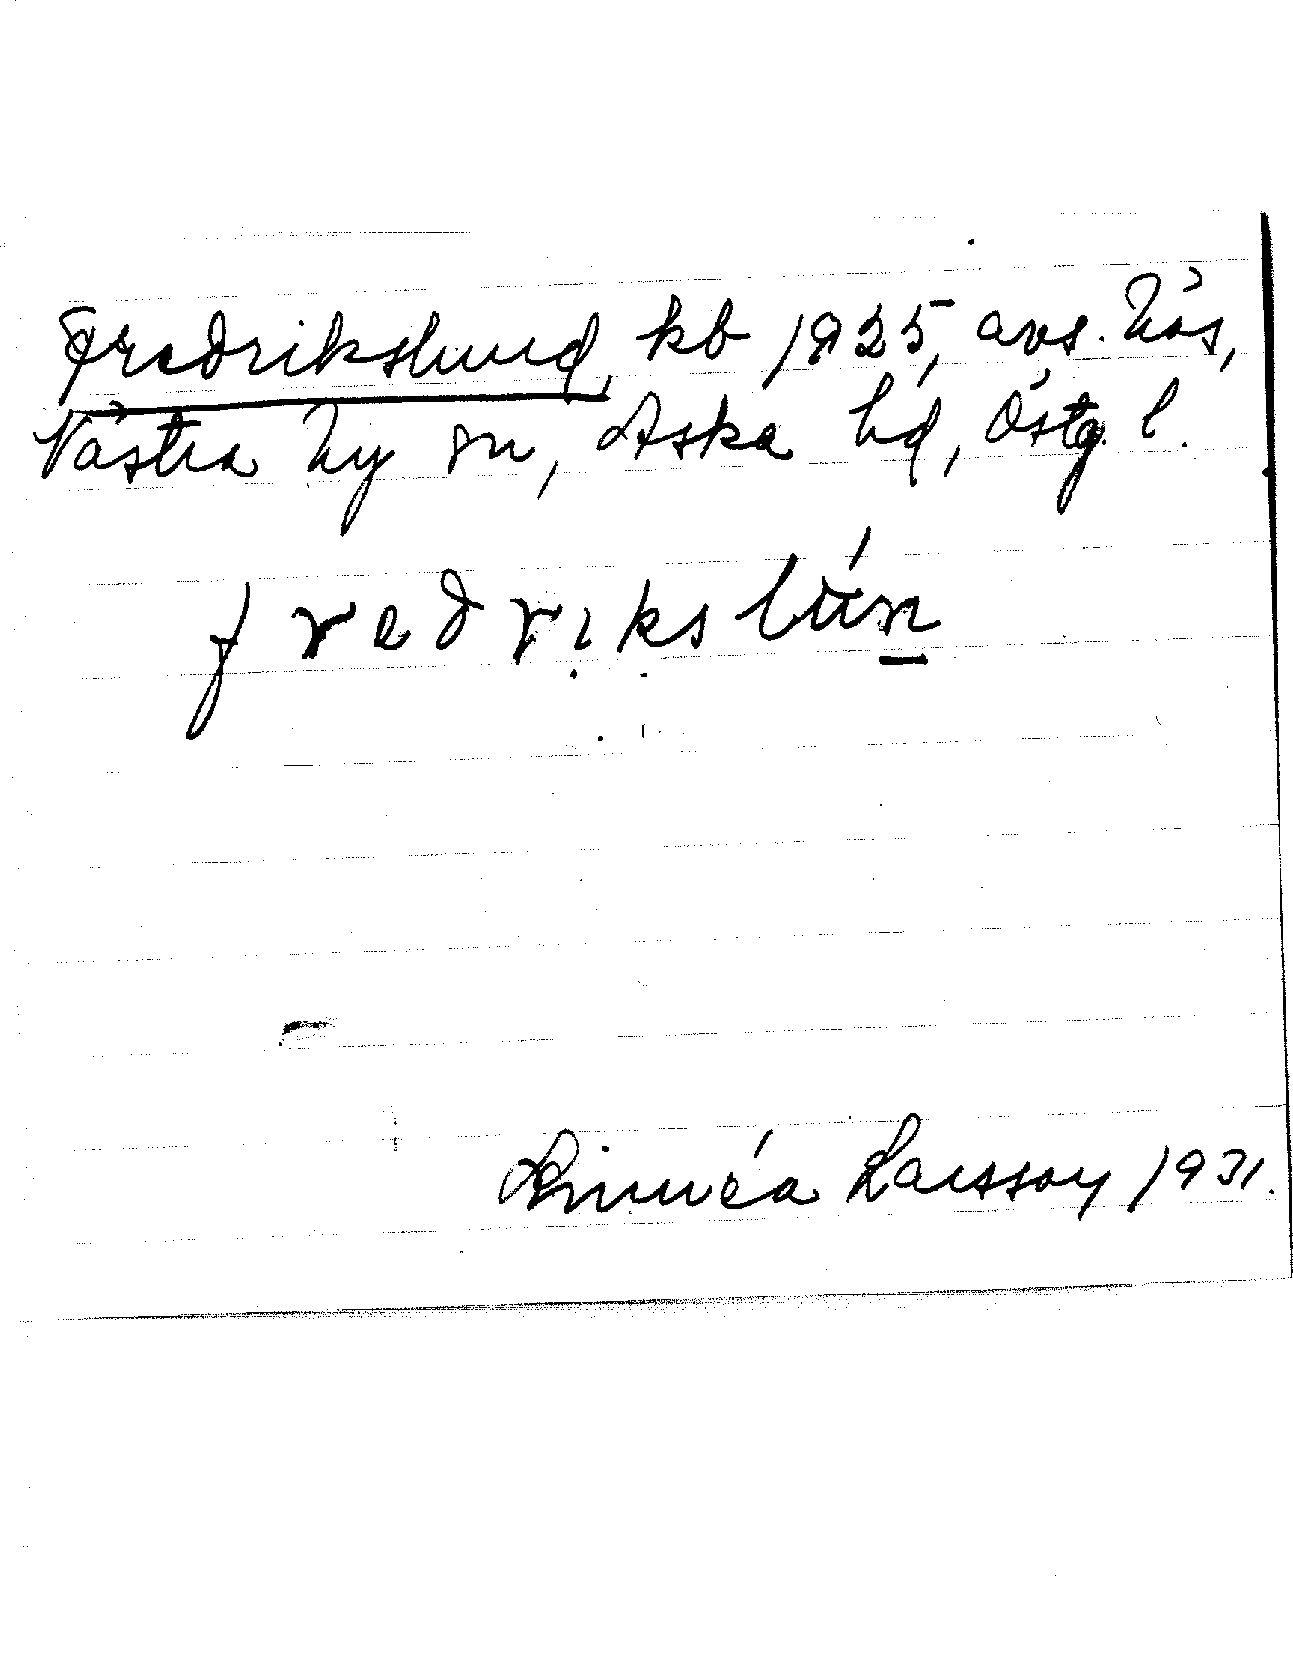 Fredrikslund, kb 1925, avs. Näs,
Västra Ny sn, Aska hd, Östg. l.
fredrikslún
Linnéa Larsson 1931.